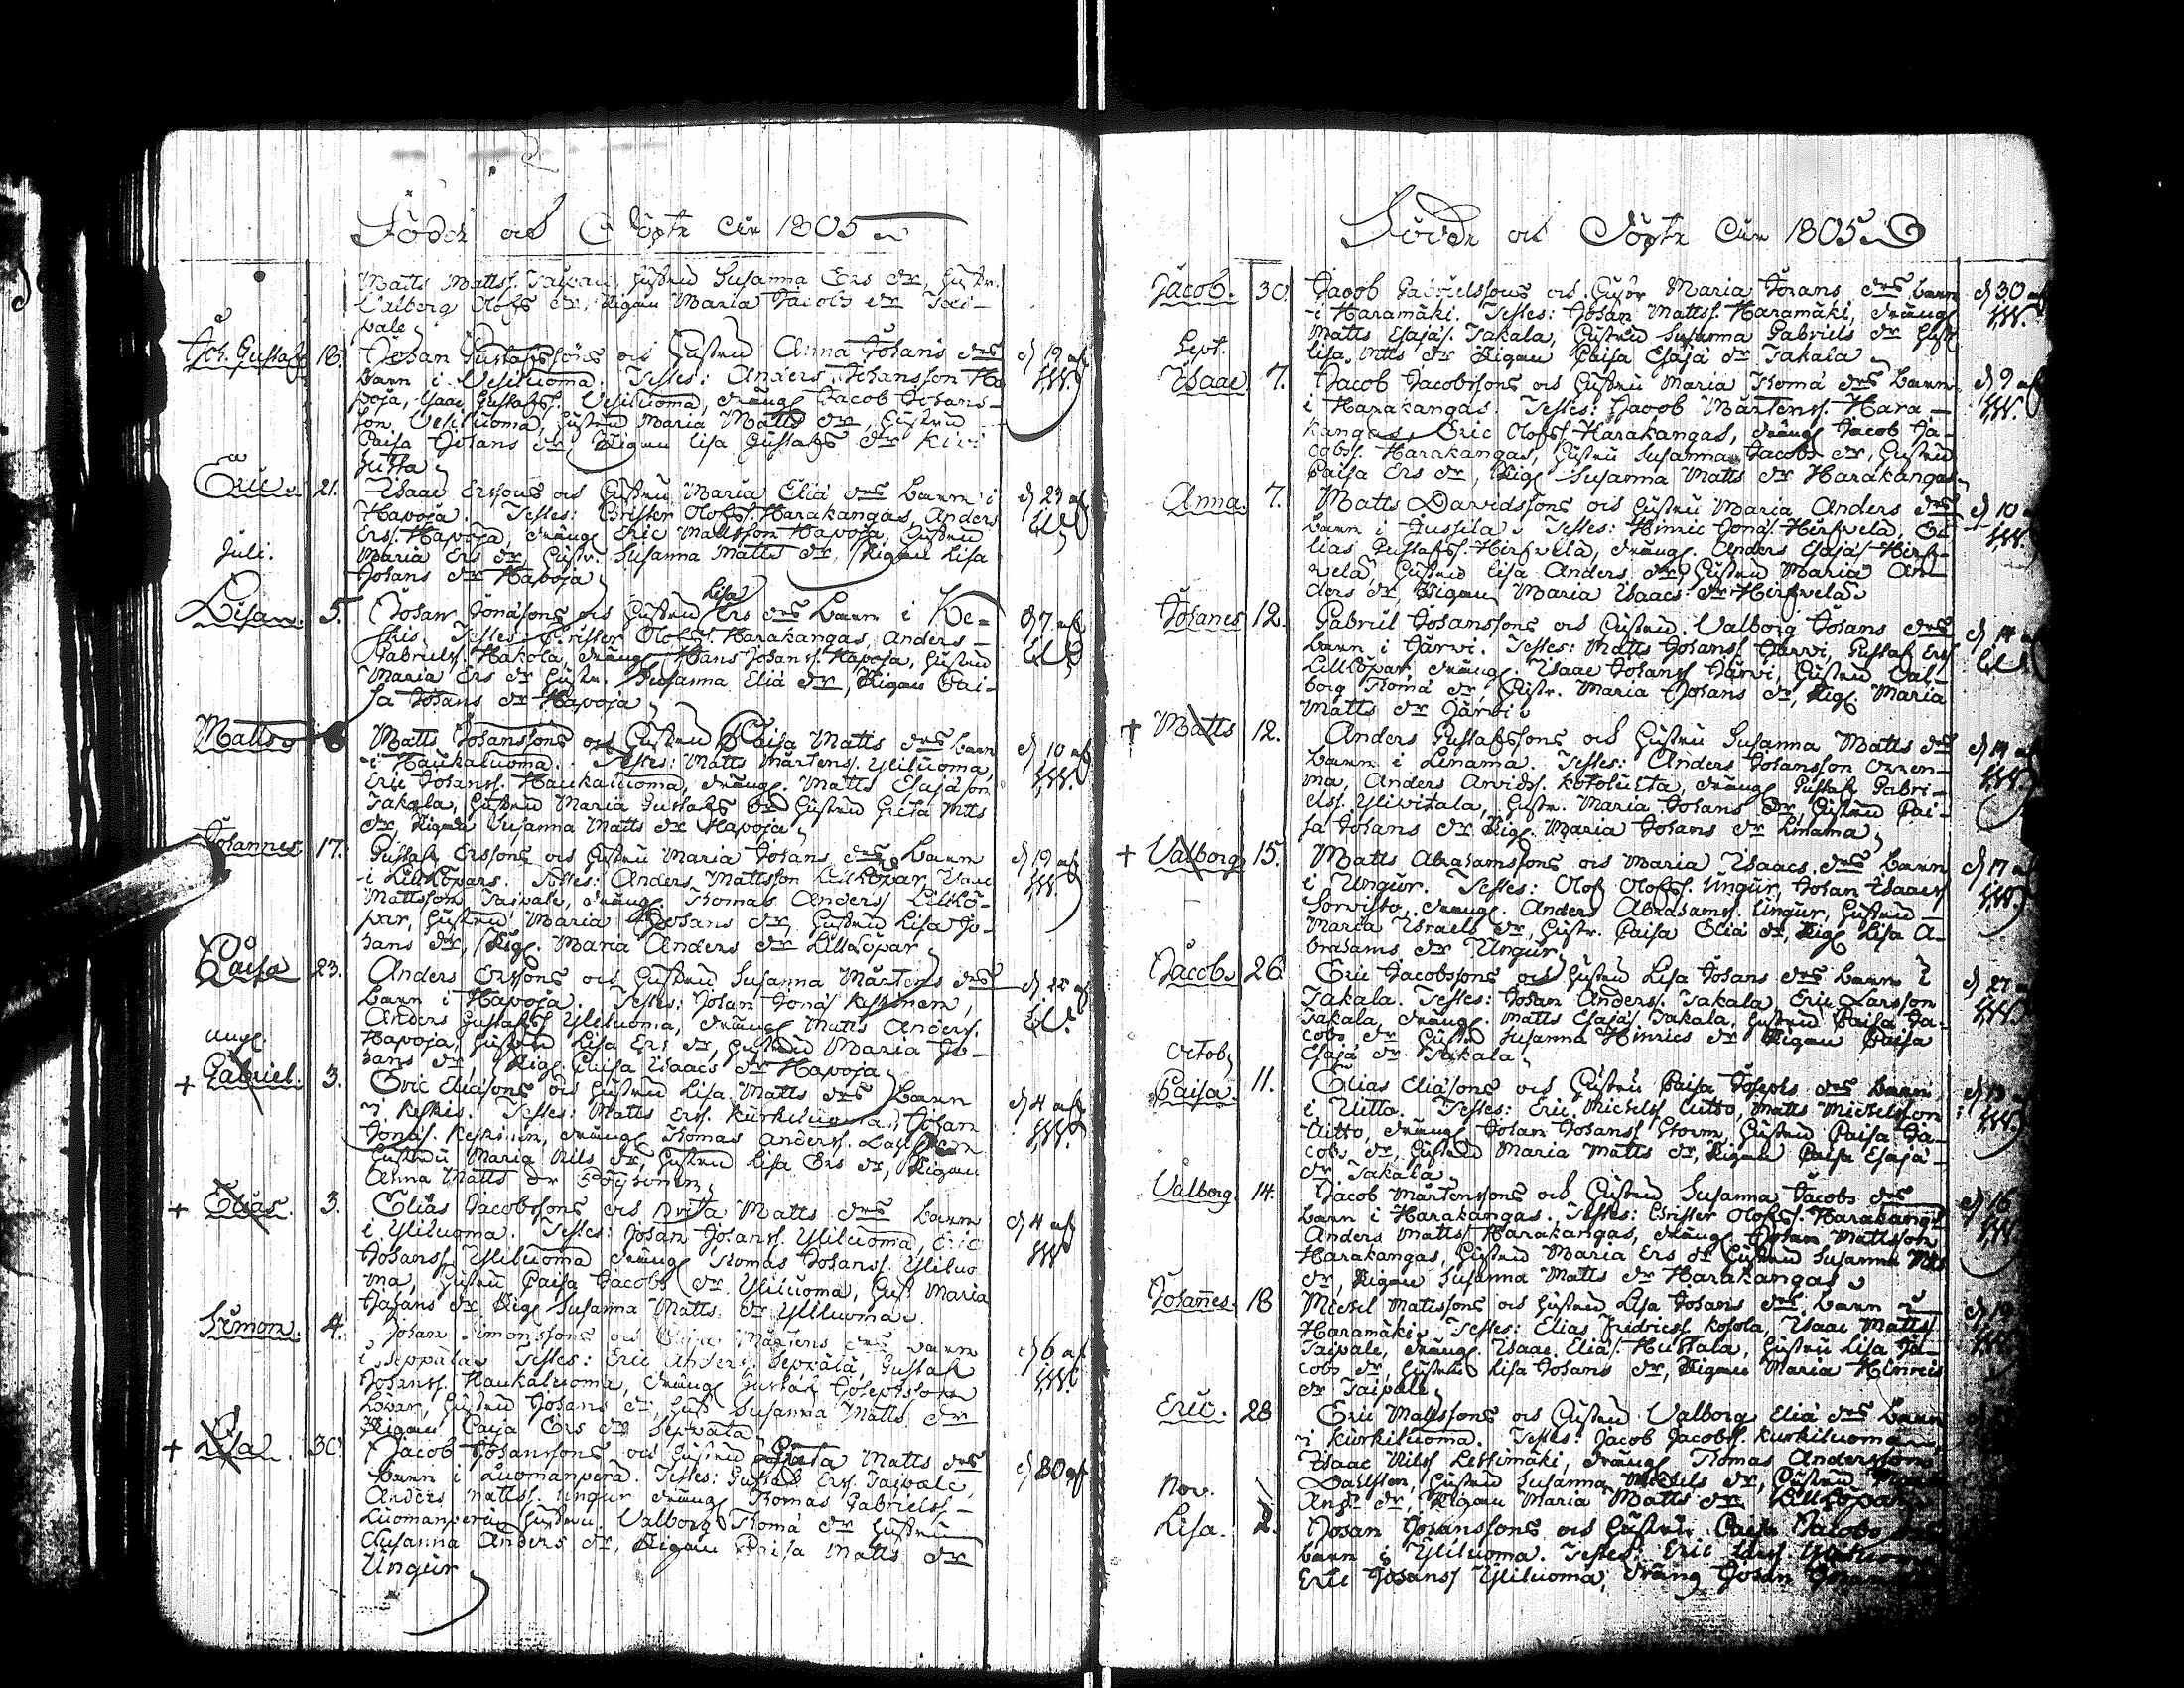 Födde och Döpte År 1805
Matts Mattss. Taipale, Hustrun Susanna Ers dr, Hustr.
Valborg Olofs dr, Pigan Maria Jacobs dr Tai-
pale
Joh. Gustaf 18. Johan Gustafssons och Hustrus Anna Johans drs d 19 af
barn i Vesiluoma. Testes: Anders Johansson Ha
poja, Isaac Gustafss. Vesiluoma, dräng Jacob Johans-
son Vesiluoma, Hustrun Maria Matts dr, Hustrun
Caisa Johans dr, Pigan Lisa Gustafs dr Kivi
Eric 21. Isaac Erssons och Hustrus Maria Eliæ drs barn i d 23 af
Hapoja. Testes: Christer Olofss. Harakangas, Anders
Erss. Hapoja, dräng Eric Mattsson Hapoja, Hustrun
Juli. Maria Ers dr, Hustr. Susanna Matts dr, Pigan Lisa
Johans dr Hapoja
Lisa 5. Johan Jonæsons och Hustrus Lisa Ers drs barn i Ke= d 7 af
skis. Testes: Christer Olofss. Harakangas, Anders
Gabrielss. Hakola, dräng Hans Johanss. Hapoja, Hustrun
Maria Ers dr Hustr. Susanna Eliæ dr, Pigan Cai-
sa Johans dr Hapoja
Matts Matts Johanssons och Hustrus Caisa Matts drs barn d 10 af
i Haukaluoma. Testes: Matts Mårtenss. Yliluoma,
Eric Johanss. Haukaluoma, dräng Matts Esajæson
Takala, Hustrun Maria Gustafs dr Hustrun Greta Mtts
dr, Pigan Susanna Matts dr Hapoja
Johannes 17. Gustaf Erssons och Hustrus Maria Johans drs barn d 19 af
i Lillköpars. Testes: Anders Mattsson Lillköpar, Isaac
Mattsson Taipale, dräng Thomas Anderss Lillkö-
par, Hustrun Maria Johans dr, Hustrun Lisa Jo-
hans dr, Pig. Maria Anders dr Lillköpar
Caisa 23. Anders Erssons och Hustrus Susanna Mårtens drs d 25 af
barn i Hapoja. Testes: Johan Jonæs. Keskinen,
Anders Gustafss. Yliluoma, dräng Matts Anderss.
Hapoja, Hustrun Lisa Ers dr, Hustrun Maria Jo-
Aug. hans dr, Pig. Caisa Isaacs dr Hapoja
+ Gabriel 3. Eric Eliæsons och Hustrus Lisa Matts drs barn d 4 af
i Keskis. Testes: Matts Erss. Kurkiluoma, Johan
Jonæs. Keskinen, dräng Thomas Anderss.
Hustrun Maria Nils dr, Hustrun Lisa Ers dr, Pigan
Anna Matts dr
+ Elias 3. Elias Jacobssons och Brita Matts drs barn d 4 af
i Yliluoma. Testes: Johan Johanss. Yliluoma, Eric
Johanss. Yliluoma dräng Thomas Johanss. Yliluo
ma, Hustrun Caisa Jacobs dr Yliluoma, Hust. Maria
Johans dr Pig. Susanna Matts dr Yliluoma
Simon 4. Johan Simonssons och Mårtens drs barn d 6 af
i Seppälä. Testes: Eric Anderss. Seppälä, Gustaf
Johanss. Haukaluoma, dräng Gustaf Josephsson
Hustrun Johans dr, Hust. Susanna Matts dr
Pigan Caisa Ers dr Seppälä
+ Lisa 30. Jacob Johanssons och Hustrus Matts drs d 30 af
barn i Luomanperä. Testes: Gustaf Erss. Taipale,
Anders Mattss. Ungur dräng Thomas Gabrielss.
Luomanperä, Hustrun Valborg Thomæ dr Hustrun
Susanna Anders dr, Pigan Caisa Matts dr
Ungur
Födde och Döpte År 1805
Jacob 30. Jacob Gabrielssons och Hustr. Maria Johans drs barn d 30 af
i Haramäki. Testes: Johan Mattss. Haramäki, dräng
Matts Esajæs. Takala, Hustrun Susanna Gabriels dr Hust
Sept. Lisa Mtts dr Pigan Caisa Esajæ dr Takala
Isaac 7. Jacob Jacobssons och Hustrus Maria Thomæ drs barn d 9 af
i Harakangas. Testes: Jacob Mårtenss. Hara-
kangas, Eric Olofss. Harakangas, dräng Jacob Ja-
cobss. Harakangas, Hustrun Susanna Jacobs dr, Hustrun
Caisa Ers dr, Pig. Susanna Matts dr Harakangas
Anna 7. Matts Davidssons och Hustrus Maria Anders drs d 10 af
barn i Jussila. Testes: Hinric Jonæs. Hirfvelä, E-
lias Gustafss. Hirfvelä, dräng. Anders Esajæs. Hirf-
velä, Hustrun Lisa Anders dr, Hustrun Maria An-
ders dr, Pigan Maria Isaacs dr Hirfvelä
Johanes 12. Gabriel Johanssons och Hustrus Valborg Johans drs d 14 af
barn i Järvi. Testes: Matts Johanss. Järvi, Gustaf Erss
Lillköpar, dräng. Isaac Johanss Järvi, Hustrun Val-
borg Thomæ dr, Hustr. Maria Johans dr, Pig. Maria
Matts dr Järvi
+ Matts 12. Anders Gustafssons och Hustrus Susanna Matts drs d 14 af
barn i Linama. Testes: Anders Johansson
ma, Anders Arvidss. dräng Gustaf Gabri-
elss. Ylivitala, Hustr. Maria Johans dr, Hustrun Cai-
sa Johans dr Pig. Maria Johans dr Linama
+ Valborg 15. Matts Abrahamssons och Maria Isaacs drs barn d 17 af
i Ungur. Testes: Olof Olofss. Ungur, Johan Isaacss
Sorvisto, dräng. Anders Abrahamss. Ungur, Hustrun
Maria Israels dr, Hustr. Caisa Eliæ dr, Pig. Lisa A-
brahams dr Ungur
Jacob 26. Eric Jacobssons och Hustrus Lisa Johans drs barn i d 27
Takala. Testes: Johan Anderss. Takala, Eric Larsson
Takala, dräng. Matts Esajæs. Takala, Hustrun Caisa Ja-
cobs dr Hustrun Susanna Hinrics dr Pigan Caisa
Octob. Esajæ dr Takala
Caisa 11. Elias Eliæsons och Hustrus Caisa Josephs drs barn d 13
i Uitto. Testes: Eric Michelss Uitto, Matts Michelsson
Uitto, dräng Johan Johanss. Storm, Hustrun Caisa Ja-
cobs dr, Hustrun Maria Matts dr, Pigan Caisa Esajæ
dr Takala
Valborg 14. Jacob Mårtenssons och Hustrus Susanna Jacobs drs d 16
barn i Harakangas. Testes: Christer Olofss. Harakangas
Anders Mattss. Harakangas, dräng Johan Mattsson
Harakangas, Hustrun Maria Ers dr Hustrun Susanna Mtts
dr, Pigan Susanna Matts dr Harakangas
Johañes 18 Michel Mattssons och Hustrus Lisa Johans drs barn i d 19
Haramäki. Testes: Elias Fredricss. Kosola, Isaac Mattss
Taipale, dräng. Isaac Eliæs. Huhtala, Hustrun Lisa Ja-
cobs dr, Hustrun Lisa Johans dr, Pigan Maria Hinrics
dr Taipale
Eric. 28 Eric Mattssons och Hustrus Valborg Eliæ drs barn
i Kurkiluoma. Testes: Jacob Jacobss. Kurkiluoma,
Isaac Nilss Lehtimäki, dräng Thomas Andersson
Dahlsten, Hustrun Susanna Michels dr, Hustrun
Nov. And. dr, Pigan Maria Matts dr Lillköpar
Lisa. 2. Johan Johanssons och Hustrus Caisa Jacobs
barn i Yliluoma. Testes: Eric
Eric Johanss Yliluoma, dräng Johan